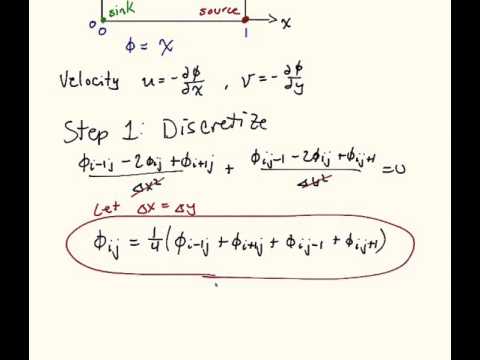 0 sink source x
0 1
ϕ = x
Velocity u = -∂ϕ/∂x , v = -∂ϕ/∂y
Step 1: Discretize
(ϕi-1j - 2ϕij + ϕi+1j)/Δx² + (ϕij-1 - 2ϕij + ϕij+1)/Δy² = 0
Let Δx = Δy
ϕij = 1/4(ϕi-1j + ϕi+1j + ϕij-1 + ϕij+1)